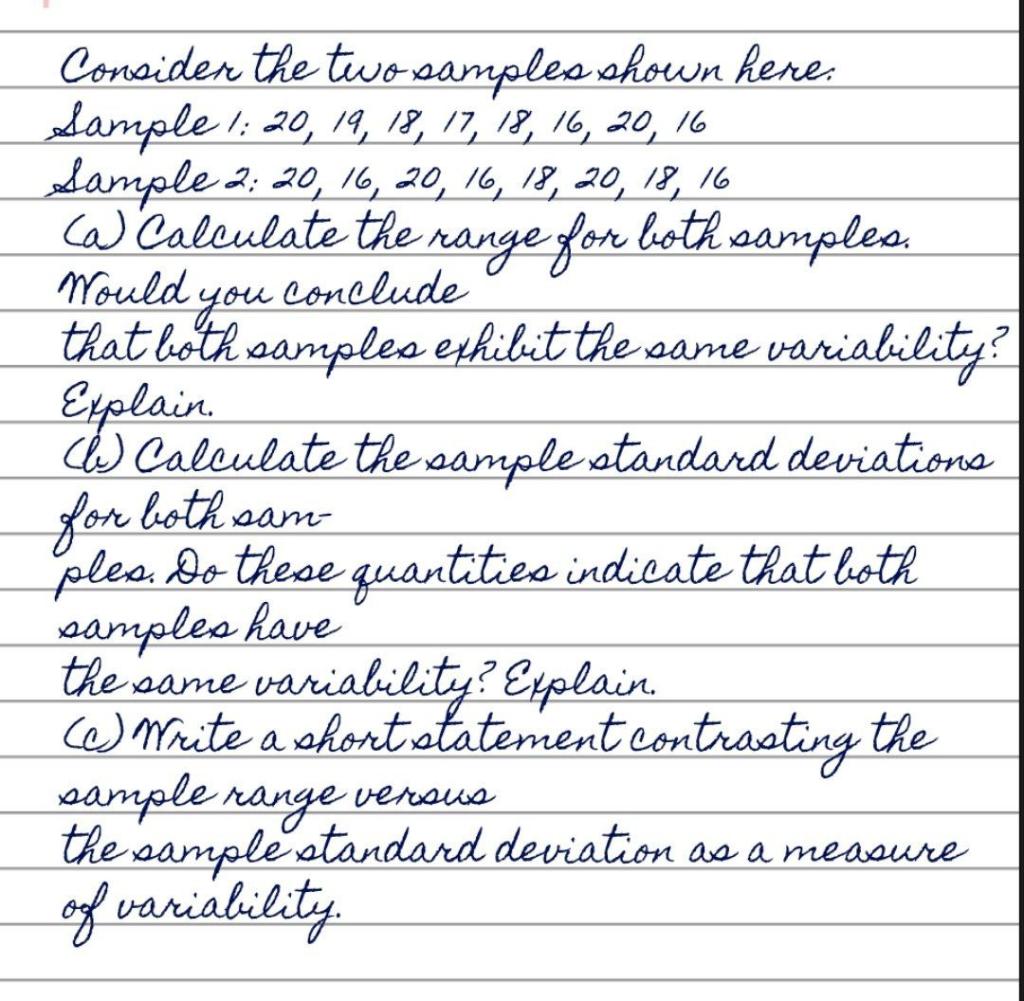 Consider the two samples shown here:
Sample 1: 20, 19, 18, 17, 18, 16, 20, 16
Sample 2: 20, 16, 20, 16, 18, 20, 18, 16
(a) Calculate the range for both samples.
Would you conclude
that both samples exhibit the same variability?
Explain.
(b) Calculate the sample standard deviations
for both sam-
ples. Do these quantities indicate that both
samples have
the same variability? Explain.
(c) Write a short statement contrasting the
sample range versus
the sample standard deviation as a measure
of variability.